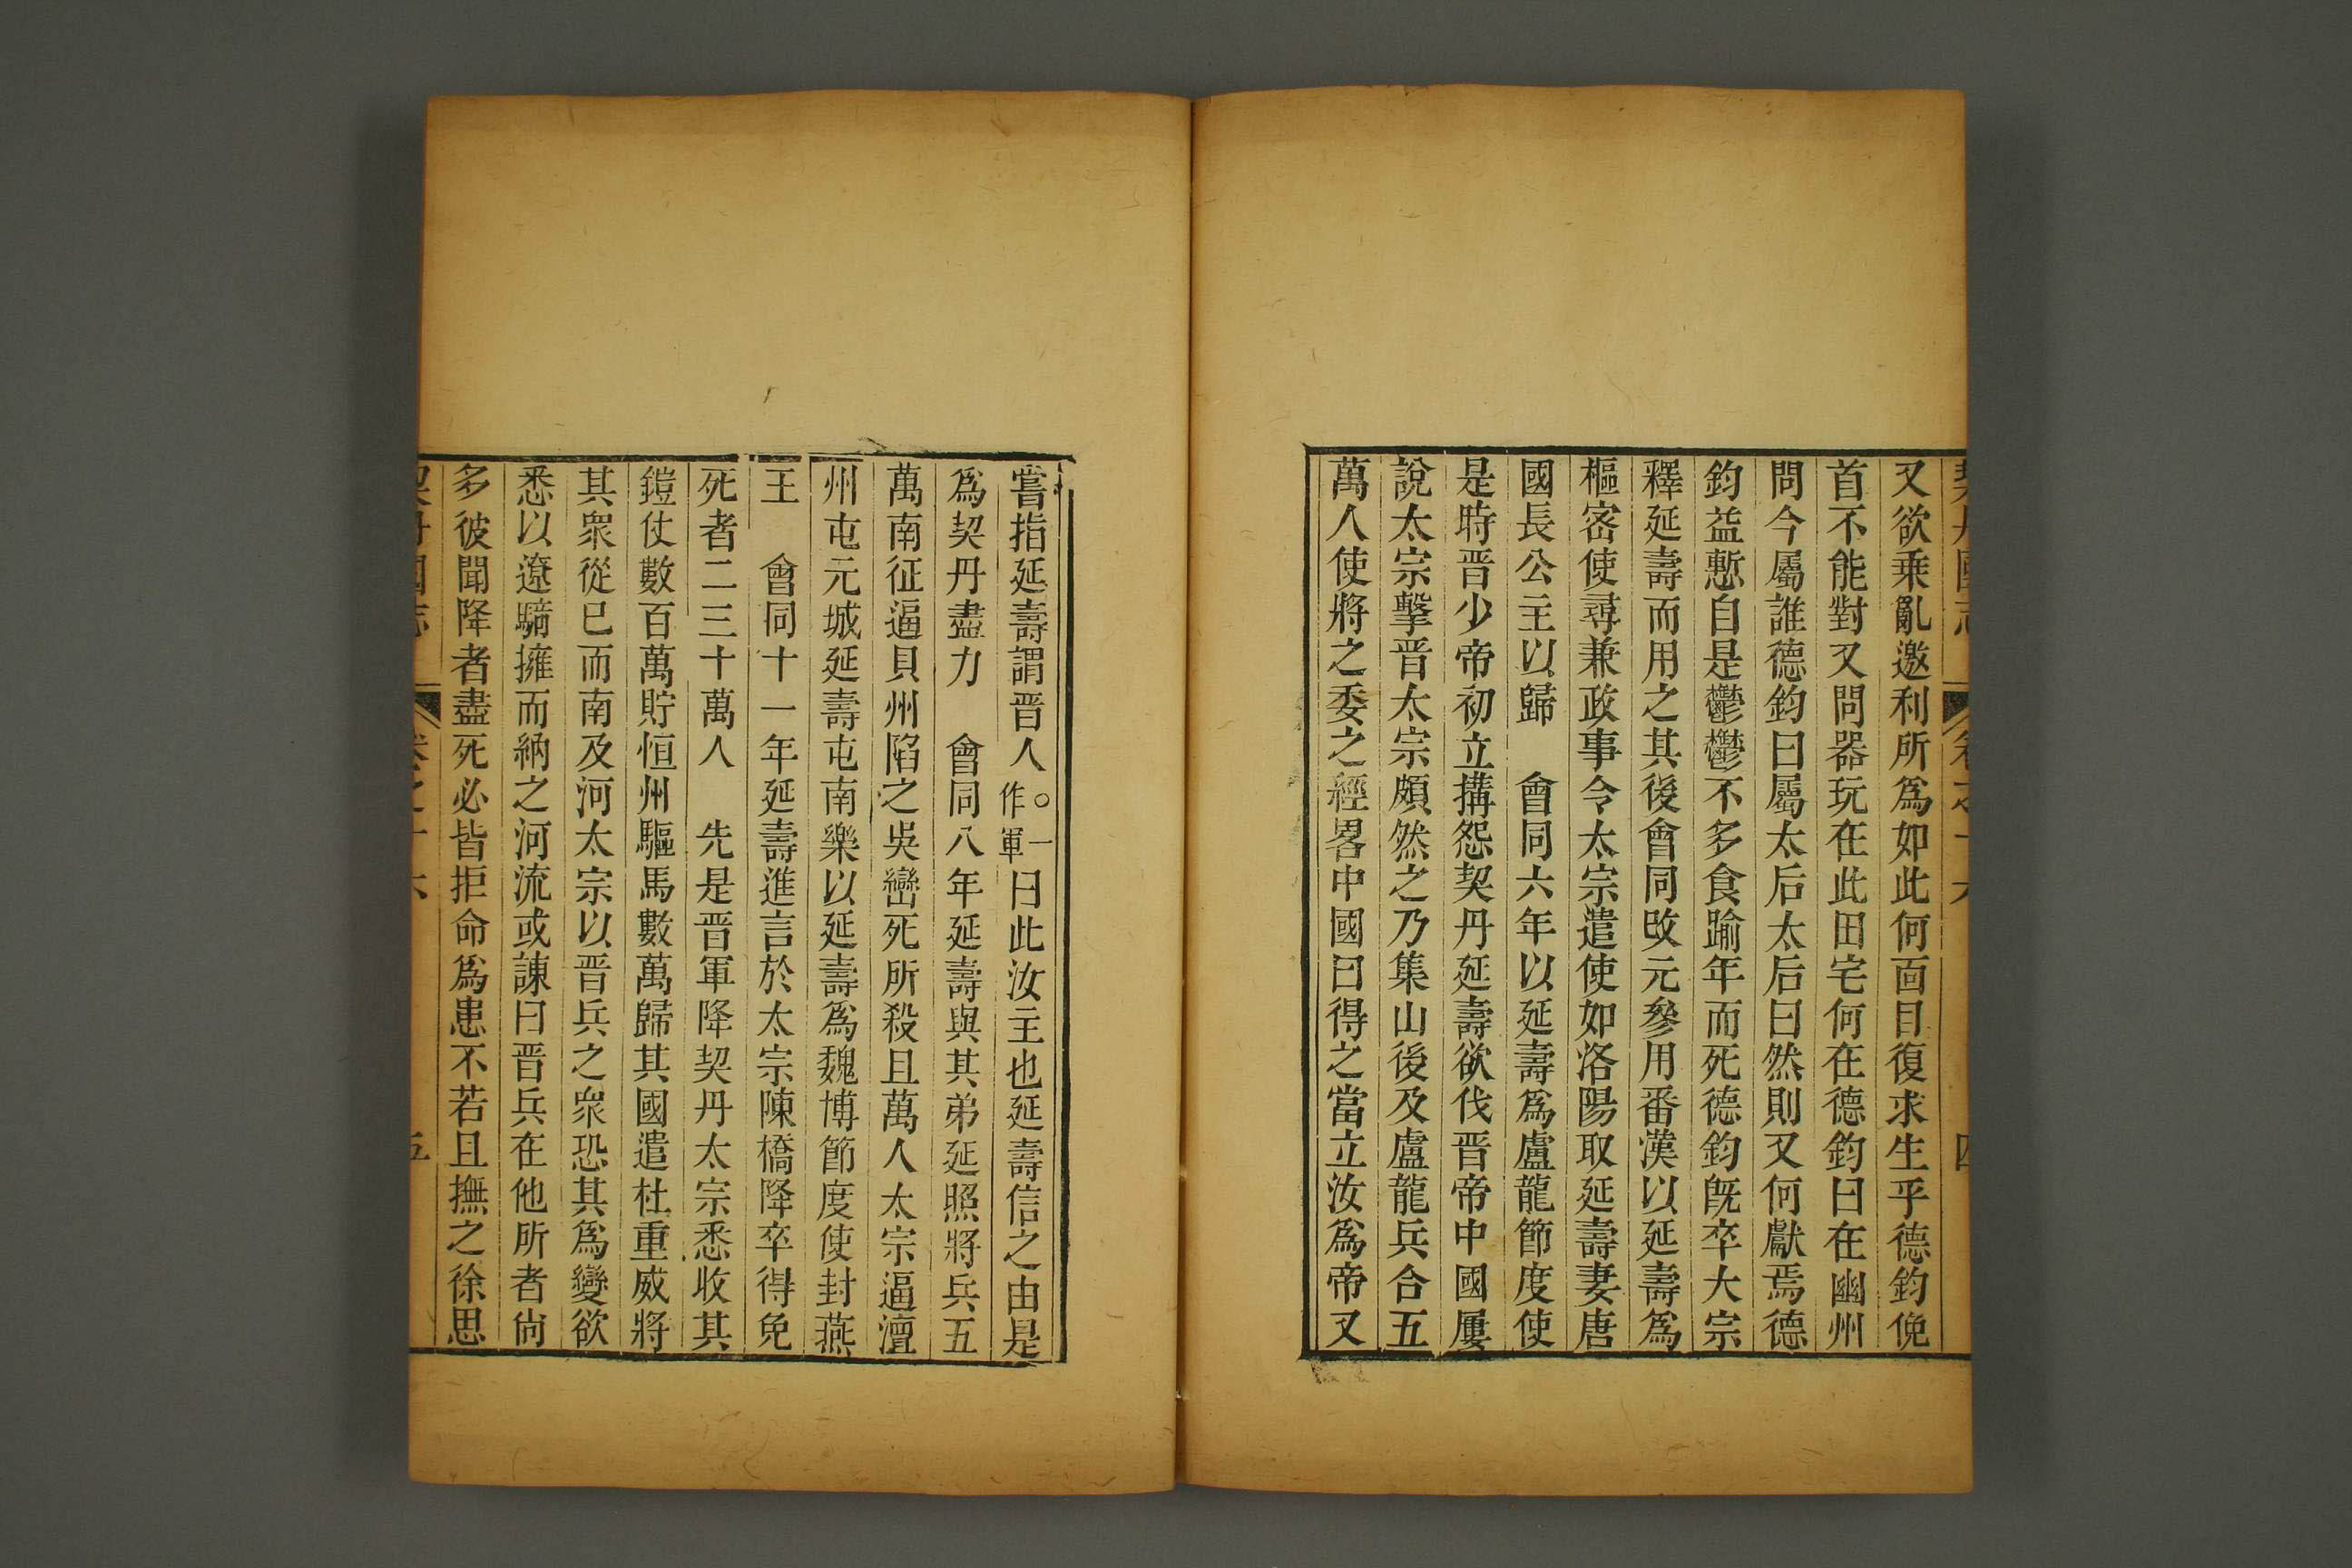 又欲乗亂邀利所爲如此何面目復求生乎德鈞俛
首不能對又問器玩在此田宅何在德鈞曰在幽州
問今屬誰德鈞曰屬太后太后曰然則又何獻焉德
鈞益慙自是鬱鬱不多食踰年而死德鈞旣卒大宗
釋延壽而用之其後會同改元參用番漢以延壽爲
樞密使尋兼政事令太宗遣使如洛陽取延壽妻唐
國長公主以歸　會同六年以延壽爲盧龍節度使
是時晋少帝初立搆怨契丹延壽欲伐晋帝中國屢
說太宗擊晋太宗頗然之乃集山後及盧龍兵合五
萬人使將之委之經畧中國曰得之當立汝爲帝又
嘗指延壽謂晋人○一作軍曰此汝主也延壽信之由是
爲契丹盡力　會同八年延壽與其弟延照將兵五
萬南征逼貝州陷之吳巒死所殺且萬人太宗逼澶
州屯元城延壽屯南樂以延壽爲魏博節度使封燕
王　會同十一年延壽進言於太宗陳橋降卒得免
死者二三十萬人　先是晋軍降契丹太宗悉收其
鎧仗數百萬貯恒州驅馬數萬歸其國遣杜重威將
其衆從已而南及河太宗以晋兵之衆恐其爲變欲
悉以遼騎擁而納之河流或諫曰晋兵在他所者尙
多彼聞降者盡死必皆拒命爲患不若且撫之徐思